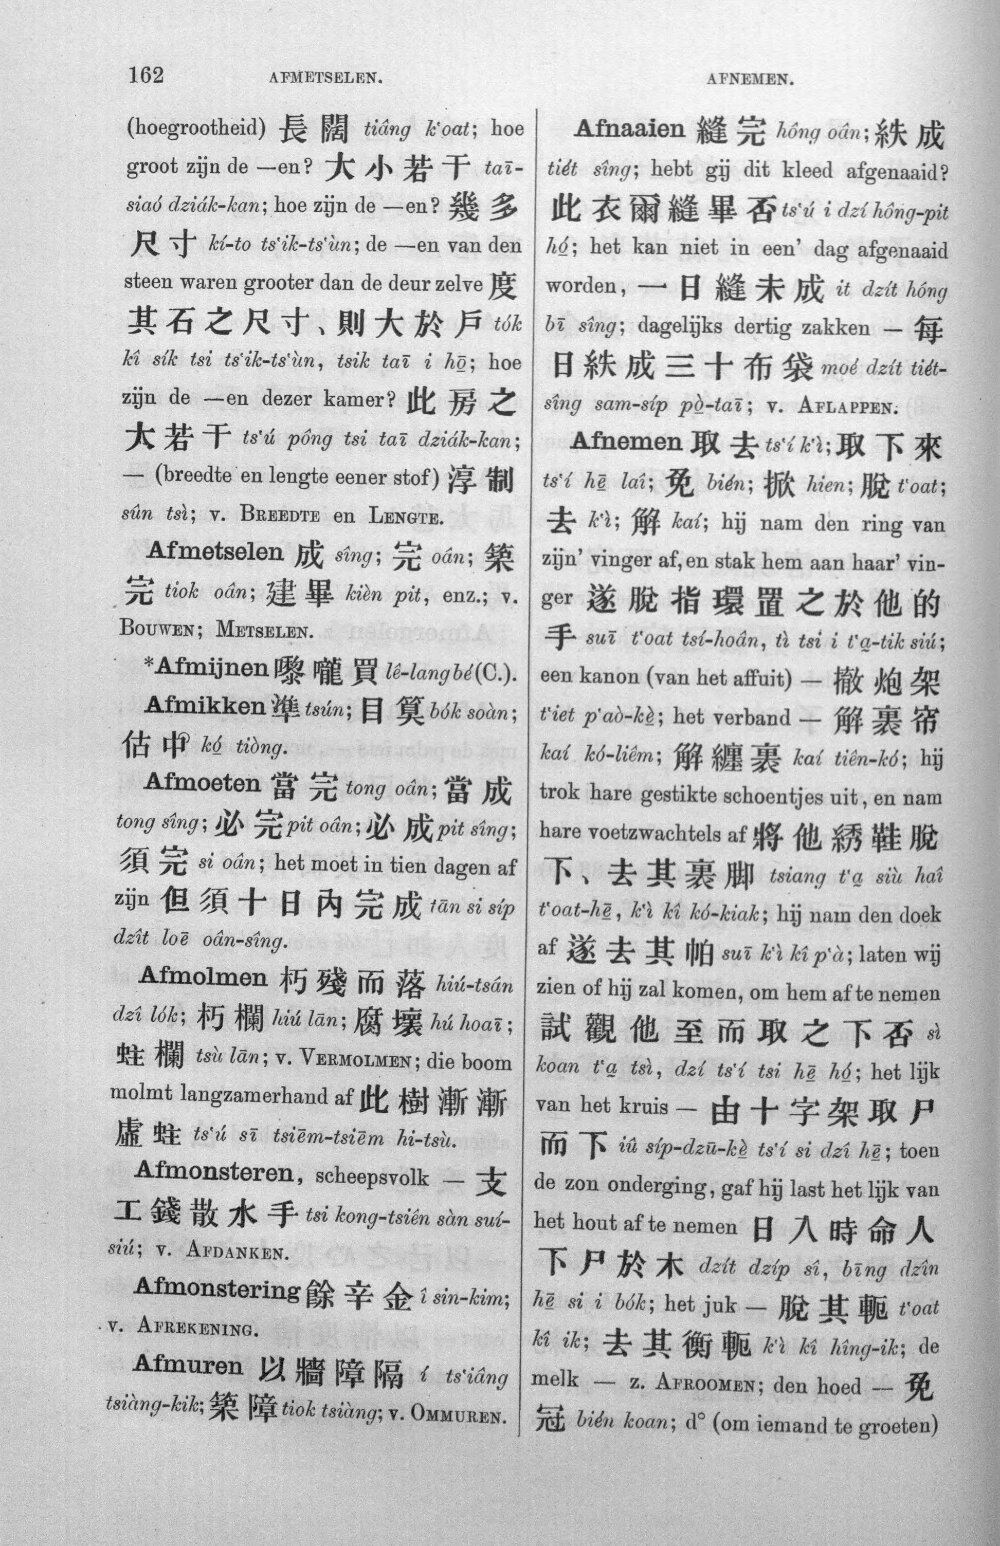 162
AFMETSELEN.
AFNEMEN.
(hoegrootheid) 長 闊 tiâng k‘oat; hoe
groot zijn de —en? 大 小 若 干 taī-
siaó dziák-kan; hoe zijn de —en? 幾 多
尺 寸 kí-to ts‘ik-ts‘ùn; de —en van den
steen waren grooter dan de deur zelve 度
其 石 之 尺 寸、則 大 於 戶 tók
kî sík tsi ts‘ik-ts‘ùn, tsik taī i hō; hoe
zijn de —en dezer kamer? 此 房 之
大 若 干 ts‘ú pông tsi taī dziák-kan;
— (breedte en lengte eener stof) 淳 制
sûn tsì; v. BREEDTE en LENGTE.
Afmetselen 成 sîng; 完 oán; 築
完 tiok oân; 建 畢 kièn pit, enz.; v.
BOUWEN; METSELEN.
*Afmijnen 嚟 嚨 買 lê-lang bé (C.).
Afmikken 準 tsún; 目 算 bók soàn;
估 中 kó tiòng.
Afmoeten 當 完 tong oán; 當 成
tong sîng; 必 完 pit oân; 必 成 pit sîng;
須 完 si oán; het moet in tien dagen af
zijn 但 須 十 日 內 完 成 tān si síp
dzît loē oân-sîng.
Afmolmen 朽 殘 而 落 hiú-tsán
dzî lók; 朽 欄 hiú lān; 腐 壞 hú hoaī;
蛀 欄 tsù lān; v. VERMOLMEN; die boom
molmt langzamerhand af 此 樹 漸 漸
虛 蛀 ts‘ú sī tsiēm-tsiēm hi-tsù.
Afmonsteren, scheepsvolk — 支
工 錢 散 水 手 tsi kong-tsiên sàn suí-
siú; v. AFDANKEN.
Afmonstering 餘 辛 金 î sin-kim;
v. AFREKENING.
Afmuren 以 牆 障 隔 í ts‘iâng
tsiàng-kik; 築 障 tiok tsiàng; v. OMMUREN.
Afnaaien 縫 完 hông oân; 紩 成
tiét sîng; hebt gij dit kleed afgenaaid?
此 衣 爾 縫 畢 否 ts‘ú i dzí hông-pit
hó; het kan niet in een’ dag afgenaaid
worden, 一 日 縫 未 成 it dzít hông
bī sîng; dagelijks dertig zakken — 每
日 紩 成 三 十 布 袋 moé dzít tiét-
sîng sam-síp pò-taī; v. AFLAPPEN.
Afnemen 取 去 ts‘í k‘ì; 取 下 來
ts‘í hē laî; 免 bién; 掀 hien; 脫 t‘oat;
去 k‘ì; 解 kaí; hij nam den ring van
zijn’ vinger af, en stak hem aan haar’ vin-
ger 遂 脫 指 環 置 之 於 他 的
手 suī t‘oat tsí-hoân, tì tsi i t‘a-tik siú;
een kanon (van het affuit) — 撤 炮 架
t‘iet p‘aò-kè; het verband — 解 裹 帘
kaí kó-liêm; 解 纏 裹 kaí tiên-kó; hij
trok hare gestikte schoentjes uit, en nam
hare voetzwachtels af 將 他 綉 鞋 脫
下、去 其 裹 脚 tsiang t‘a siù haî
t‘oat-hē, k‘ì kî kó-kiak; hij nam den doek
af 遂 去 其 帕 suī k‘ì kî p‘à; laten wij
zien of hij zal komen, om hem af te nemen
試 觀 他 至 而 取 之 下 否 sì
koan t‘a tsì, dzí ts‘í tsi hē hó; het lijk
van het kruis — 由 十 字 架 取 尸
而 下 iû síp-dzū-kè ts‘í si dzî hē; toen
de zon onderging, gaf hij last het lijk van
het hout af te nemen 日 入 時 命 人
下 尸 於 木 dzít dzíp sî, bīng dzîn
hē si i bók; het juk — 脫 其 軛 t‘oat
kî ik; 去 其 衡 軛 k‘ì kî hîng-ik; de
melk — z. AFROOMEN; den hoed — 免
冠 bién koan; d° (om iemand te groeten)